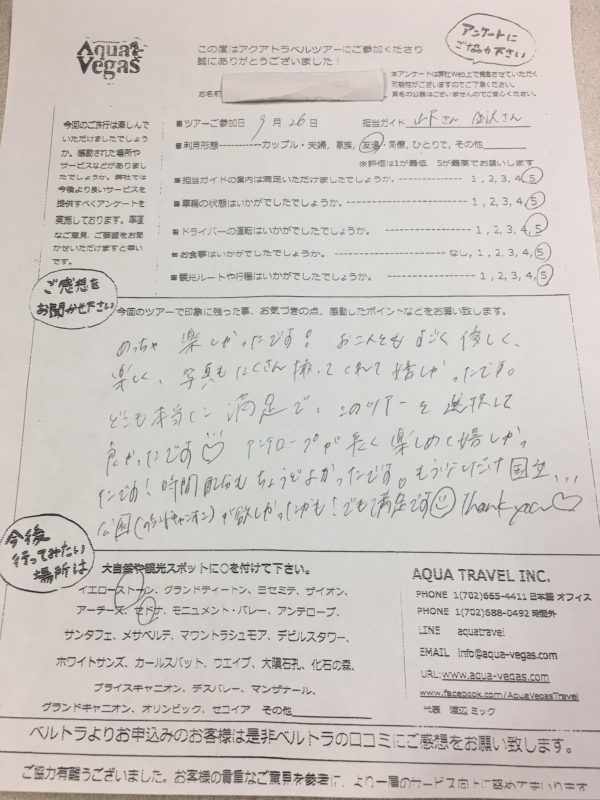 Aqua Vegas
この度はアクアトラベルツアーにご参加くださり
誠にありがとうございました!
アンケートに
ご協力下さい
本アンケートは弊社Web上で掲載させていただく
可能性がございますのでご了承ください。
実名の公表はございませんのでご安心ください。
お名前
今回のご旅行は楽しんで
いただけましたでしょう
か。感動された場所や
サービスなどがありまし
たでしょうか。弊社では
今後より良いサービスを
提供すべくアンケートを
実施しております。率直
なご意見、ご要望をお聞
かせいただけますと幸い
です。
■ツアーご参加日 9月26日 担当ガイド 山下さん 金沢さん
■利用形態-----------カップル・夫婦, 家族, 友達・同僚, ひとりで, その他
※評価は1が最低 5が最高でお願いします
■担当ガイドの案内は満足いただけましたでしょうか。 1, 2, 3, 4, 5
■車輌の状態はいかがでしたでしょうか。 1, 2, 3, 4, 5
■ドライバーの運転はいかがでしたでしょうか。 1, 2, 3, 4, 5
■お食事はいかがでしたでしょうか。 なし, 1, 2, 3, 4, 5
■観光ルートや行程はいかがでしたでしょうか。 1, 2, 3, 4, 5
ご感想を
お聞かせ下さい
今回のツアーで印象に残った事、お気づきの点、感動したポイントなどをお願い致します。
めっちゃ 楽しかったです! お二人ともすごく優しく、
楽しく、写真もたくさん撮ってくれて嬉しかったです。
どこも本当に満足で、このツアーを選択して
良かったです♡ アンテロープが長く楽しめて嬉しかっ
たです!時間配分もちょうどよかったです。もう少しだけ国立...
公園(グランドキャニオン)が欲しかったかも!でも満足です☺ Thank you♡
今後
行ってみたい
場所は
大自然や観光スポットに○を付けて下さい。
イエローストーン、グランドティートン、ヨセミテ、ザイオン、
アーチーズ、セドナ、モニュメント・バレー、アンテロープ、
サンタフェ、メサベルテ、マウントラシュモア、デビルスタワー、
ホワイトサンズ、カールスバット、ウエイブ、大隕石孔、化石の森、
ブライスキャニオン、デスバレー、マンザナール、
グランドキャニオン、オリンピック、セコイア その他
AQUA TRAVEL INC.
PHONE 1(702)665-4411 日本語 オフィス
PHONE 1(702)688-0492 時間外
LINE aquatravel
EMAIL info@aqua-vegas.com
URL: www.aqua-vegas.com
www.facebook.com/AquaVegasTravel
代表 渡辺 ミック
ベルトラよりお申込みのお客様は是非ベルトラの口コミにご感想をお願い致します。
ご協力有難うございました。お客様の貴重なご意見を参考に、より一層のサービス向上に努めてまいります